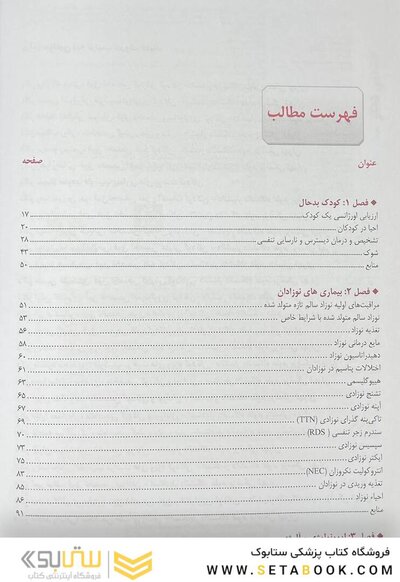 فهرست مطالب
عنوان صفحه
◆ فصل ۱: کودک بدحال
ارزیابی اورژانسی یک کودک ۱۷
احیا در کودکان ۲۰
تشخیص و درمان دیسترس و نارسایی تنفسی ۲۸
شوک ۴۳
منابع ۵۰
◆ فصل ۲: بیماری های نوزادان
مراقبت‌های اولیه نوزاد سالم تازه متولد شده ۵۱
نوزاد سالم متولد شده با شرایط خاص ۵۳
تغذیه نوزاد ۵۶
مایع درمانی نوزاد ۵۸
دهیدراتاسیون نوزاد ۶۰
اختلالات پتاسیم در نوزادان ۶۱
هیپوگلیسمی ۶۳
تشنج نوزادی ۶۵
آپنه نوزادی ۶۷
تاکی‌پنه گذرای نوزادی (TTN) ۶۹
سندرم زجر تنفسی (RDS) ۷۰
سپسیس نوزادی ۷۳
ایکتر نوزادی ۷۵
انتروکولیت نکروزان (NEC) ۸۳
تغذیه وریدی در نوزادان ۸۵
احیاء نوزاد ۸۶
منابع ۹۱
◆ فصل ۳:
ستابوک
فروشگاه اینترنتی کتاب
فروشگاه کتاب پزشکی ستابوک
WWW.SETABOOK.COM